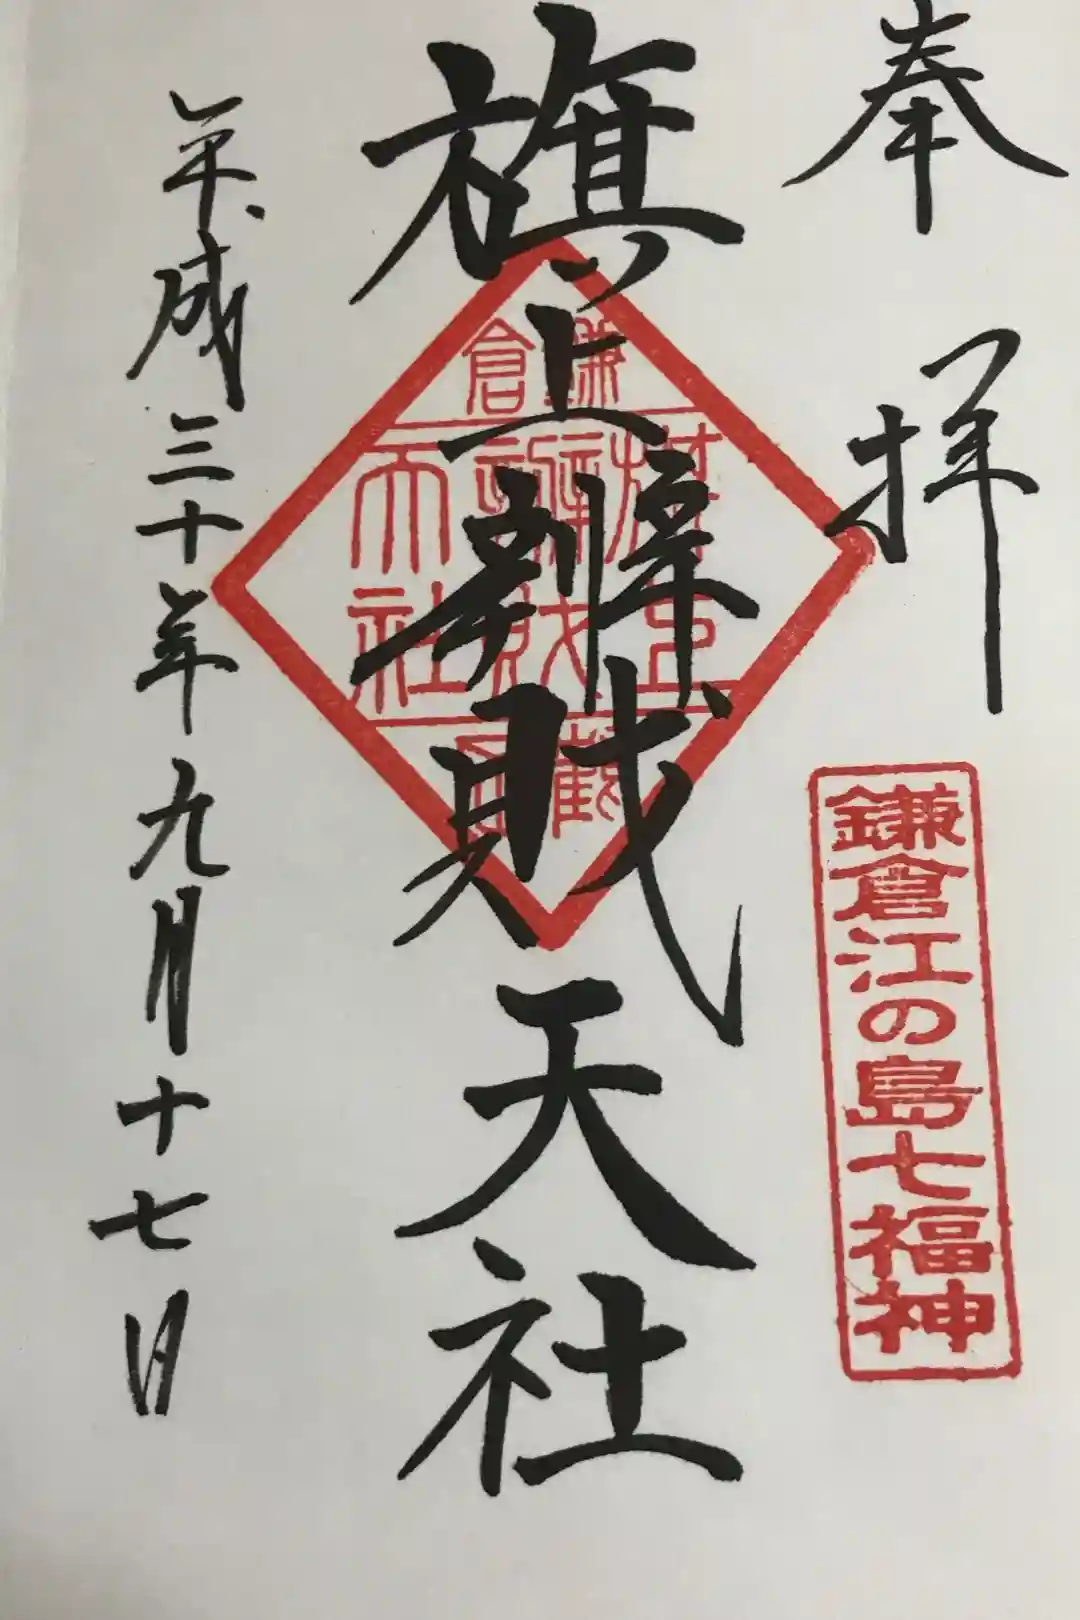 奉拝
鎌倉江の島七福神
旗上辨財天社
鎌倉
旗上
辨財
天社
平成三十年九月十七日